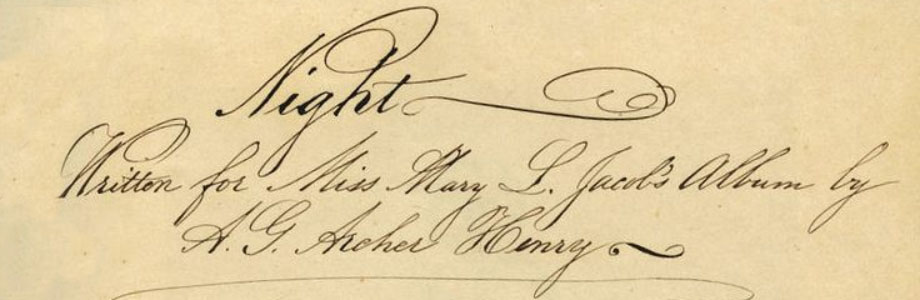 Night
Written for Miss Mary L. Jacob's Album by
A. G. Archer Henry